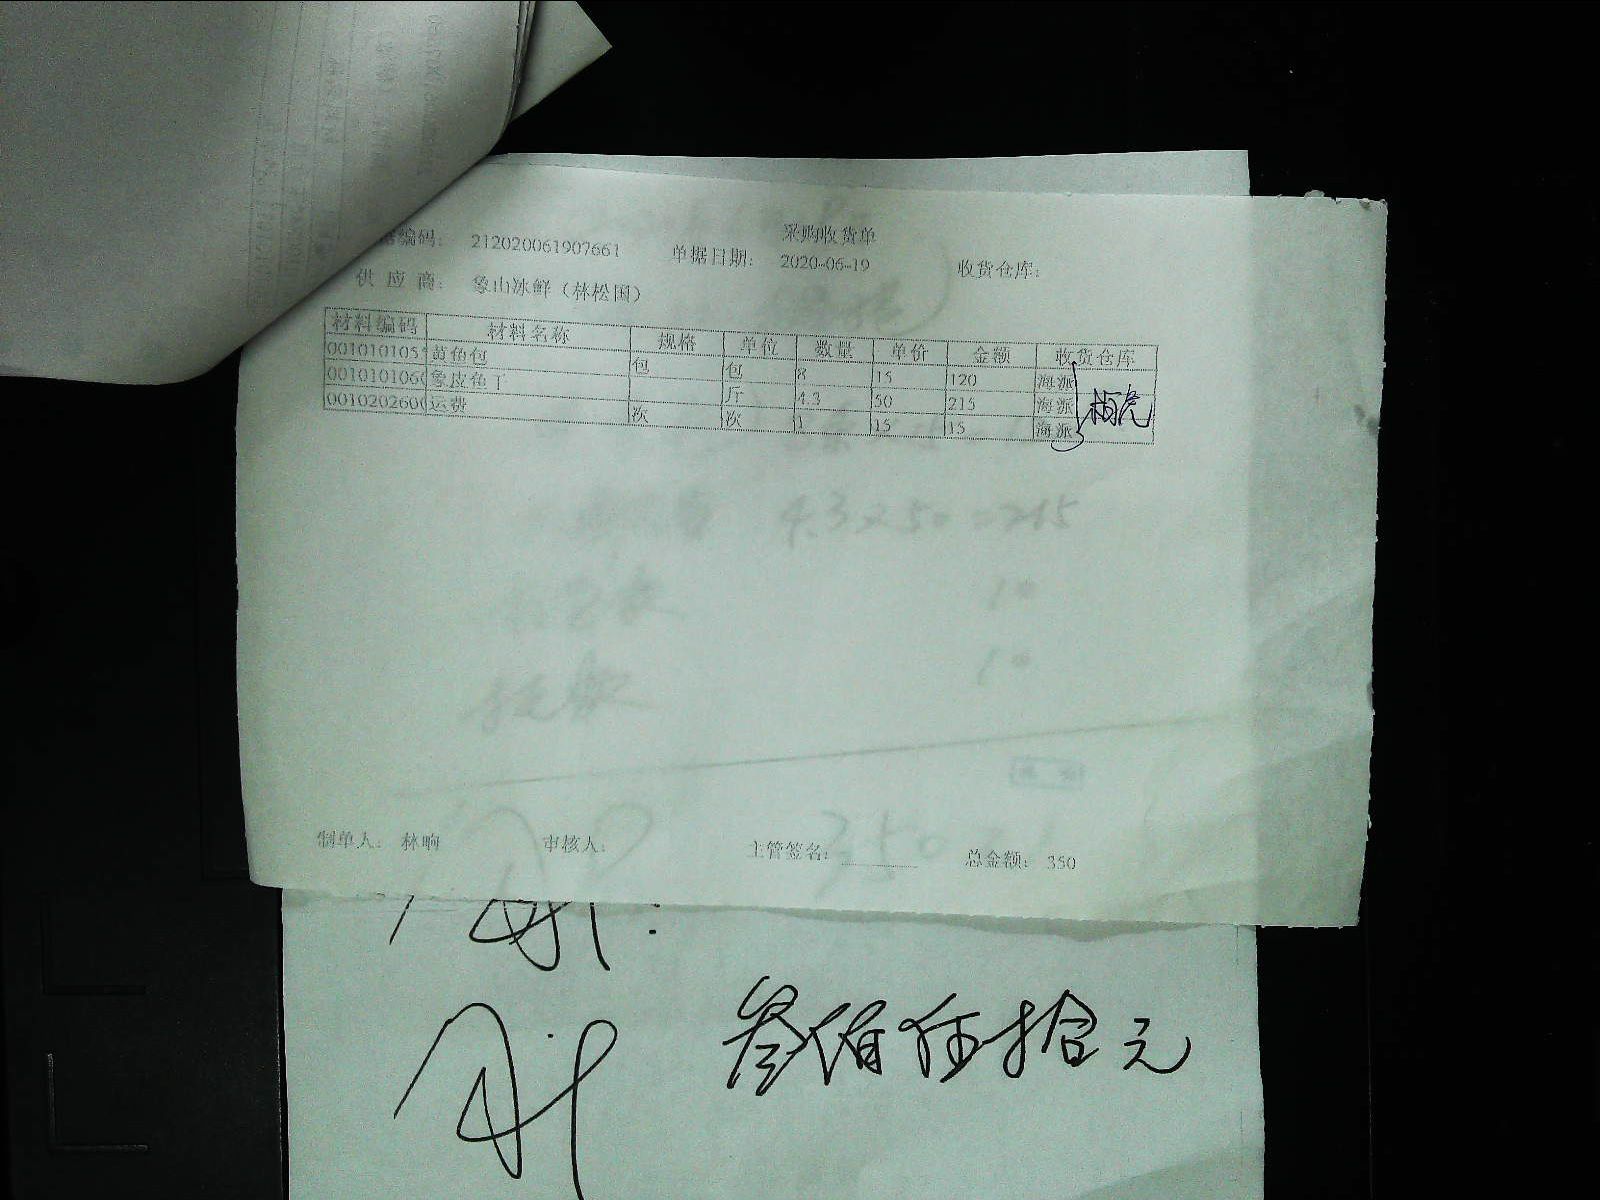 采购收货单
编码: 212020061907661 单据日期: 2020-06-19 收货仓库:
供 应 商: 象山冰鲜（林松国）
材料编码 材料名称 规格 单位 数量 单价 金额 收货仓库
0010101055 黄鱼包 包 包 8 15 120 海派
0010101060 象皮鱼丁 斤 4.3 50 215 海派
0010202600 运费 次 次 1 15 15 海派
4.3×50=215
10
10
350
制单人: 林晌 审核人: 主管签名: 总金额: 350
叁佰伍拾元